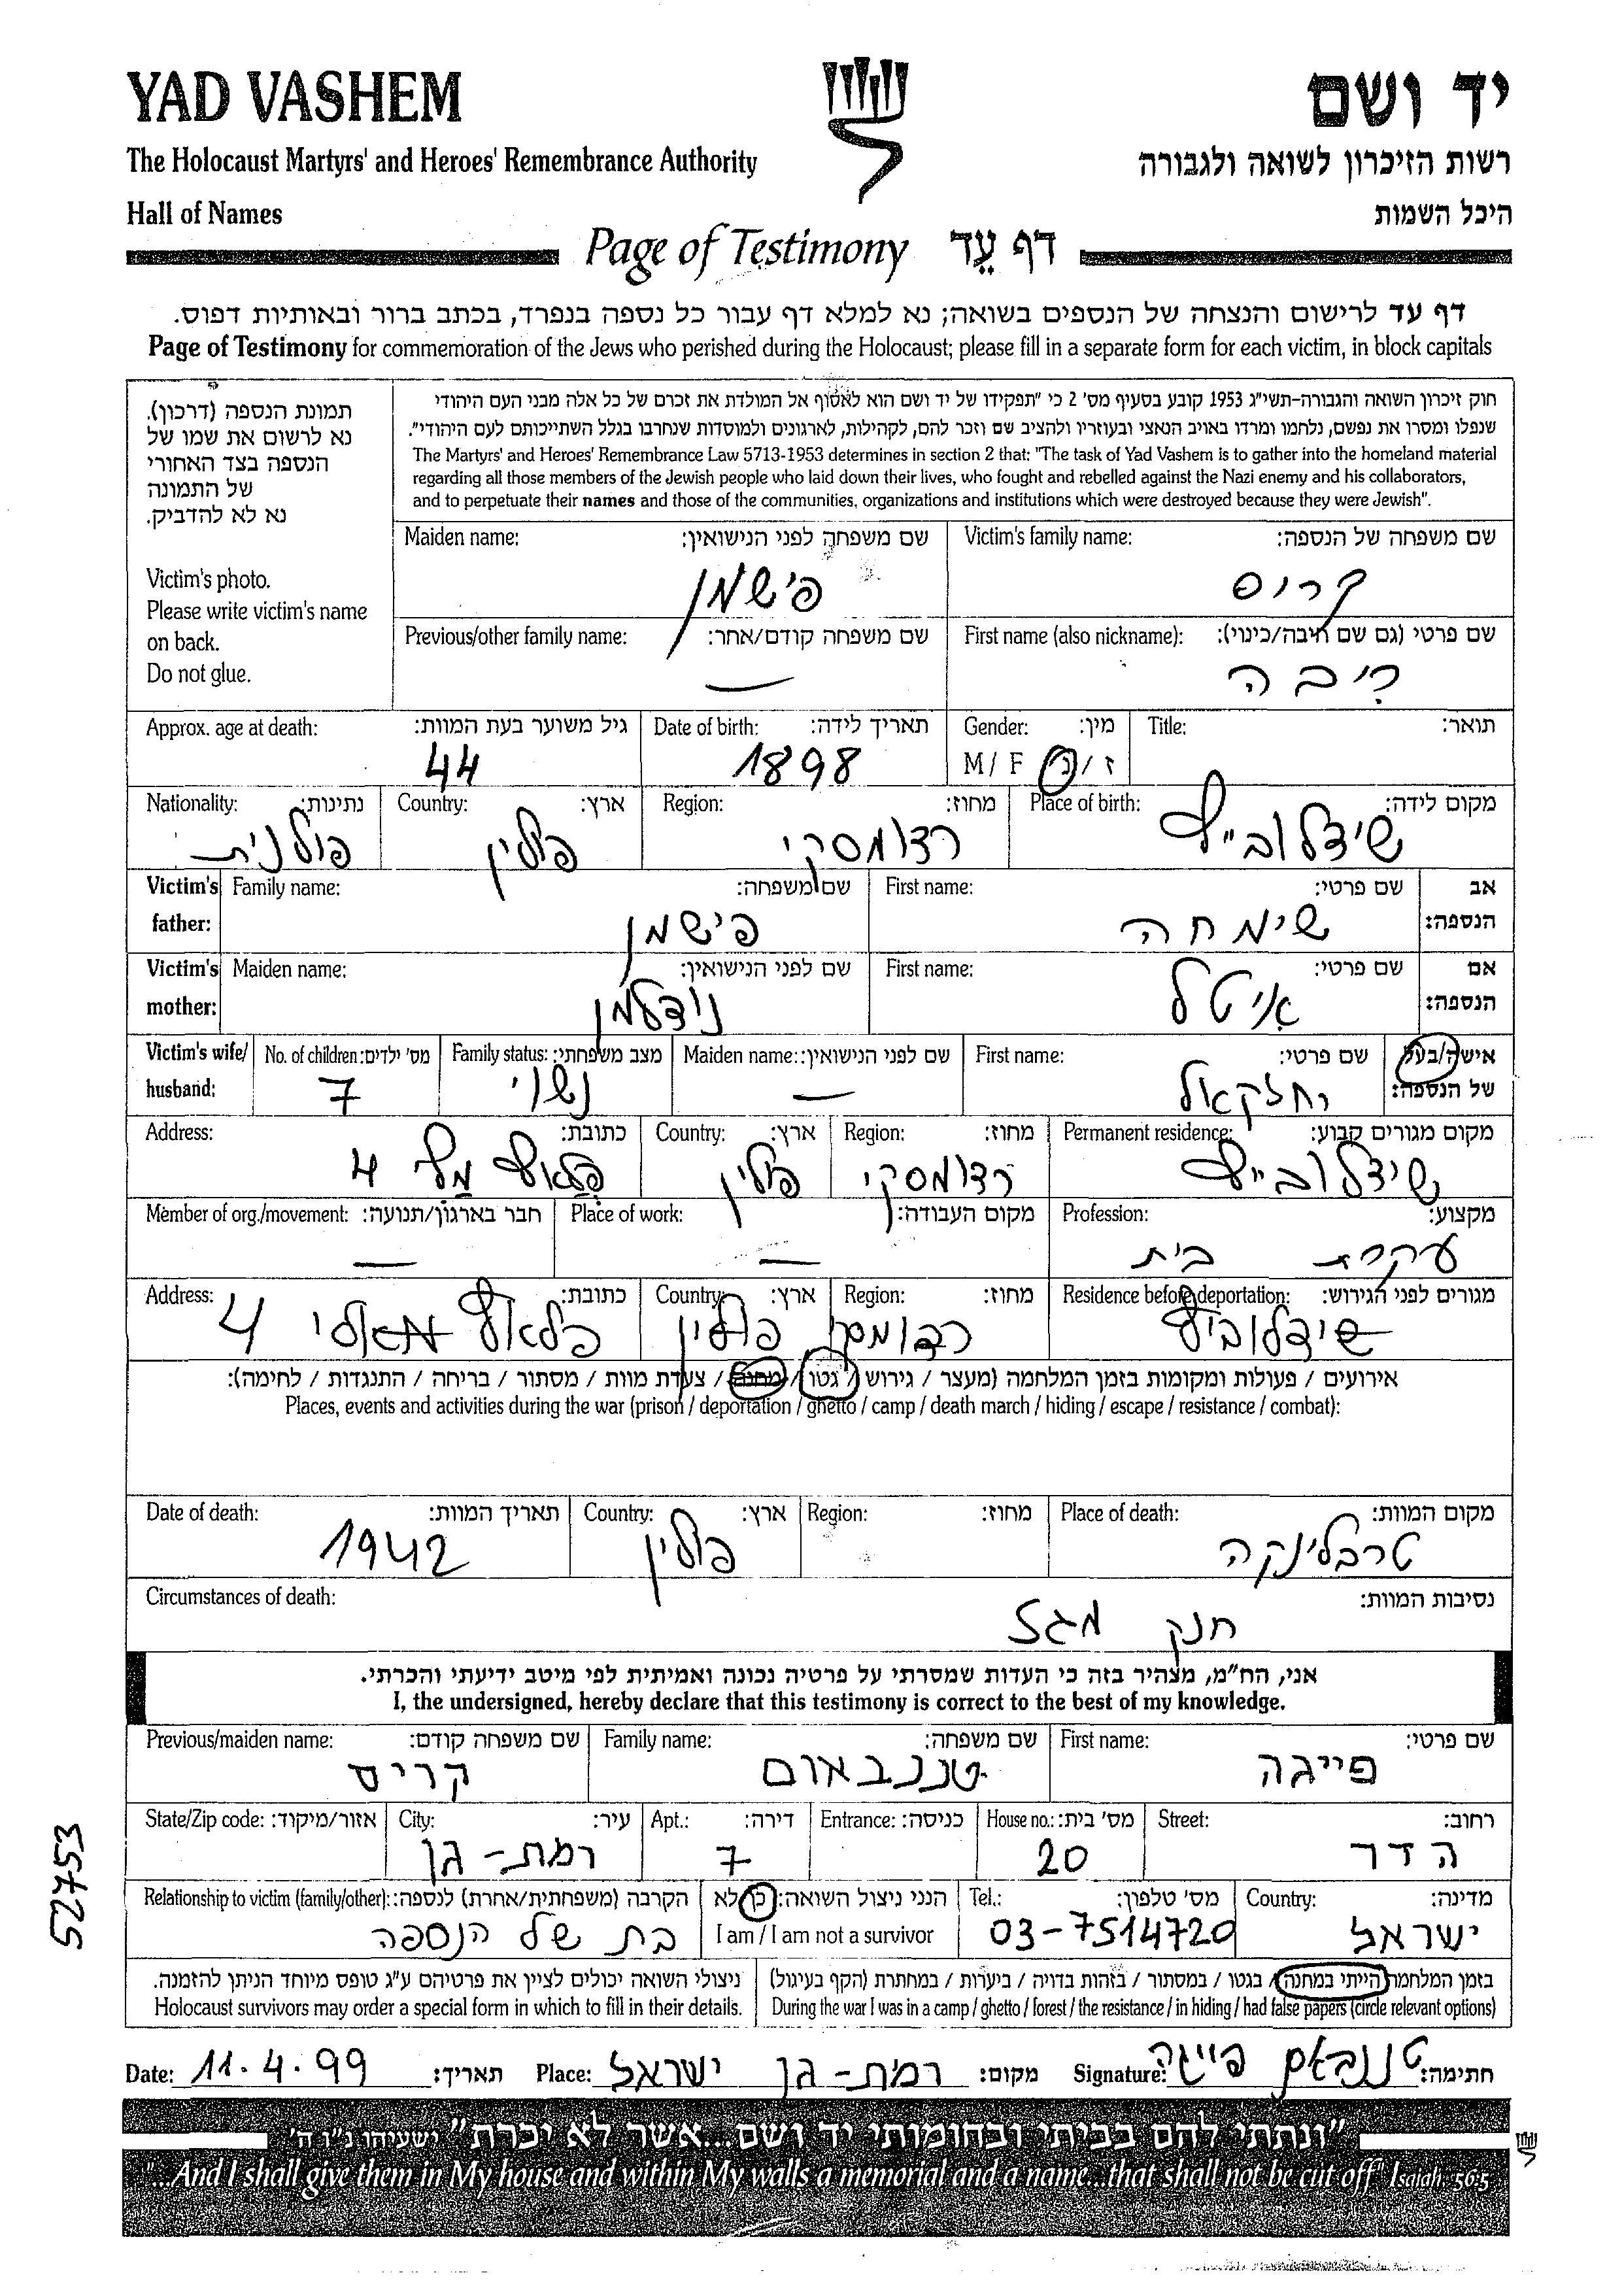 YAD VASHEM
יד ושם
The Holocaust Martyrs' and Heroes' Remembrance Authority
רשות הזיכרון לשואה ולגבורה
Hall of Names
היכל השמות
Page of Testimony דף עֵד
דף עד לרישום והנצחה של הנספים בשואה; נא למלא דף עבור כל נספה בנפרד, בכתב ברור ובאותיות דפוס.
Page of Testimony for commemoration of the Jews who perished during the Holocaust; please fill in a separate form for each victim, in block capitals
תמונת הנספה (דרכון).
נא לרשום את שמו של
הנספה בצד האחורי
של התמונה
נא לא להדביק.
Victim's photo.
Please write victim's name
on back.
Do not glue.
חוק זיכרון השואה והגבורה-תשי"ג 1953 קובע בסעיף מס' 2 כי "תפקידו של יד ושם הוא לאסוף אל המולדת את זכרם של כל אלה מבני העם היהודי
שנפלו ומסרו את נפשם, נלחמו ומרדו באויב הנאצי ובעוזריו ולהציב שם וזכר להם, לקהילות, לארגונים ולמוסדות שנחרבו בגלל השתייכותם לעם היהודי".
The Martyrs' and Heroes' Remembrance Law 5713-1953 determines in section 2 that: "The task of Yad Vashem is to gather into the homeland material
regarding all those members of the Jewish people who laid down their lives, who fought and rebelled against the Nazi enemy and his collaborators,
and to perpetuate their names and those of the communities, organizations and institutions which were destroyed because they were Jewish".
Victim's family name: שם משפחה של הנספה:
קרויס
Maiden name: שם משפחה לפני הנישואין:
פישמן
First name (also nickname): שם פרטי (גם שם חיבה/כינוי):
ריבה
Previous/other family name: שם משפחה קודם/אחר:
—
Title: תואר:
Gender: מין:
M / F ז / נ
Date of birth: תאריך לידה:
1898
Approx. age at death: גיל משוער בעת המוות:
44
Place of birth: מקום לידה:
שידלוביץ
Region: מחוז:
רדומסקי
Country: ארץ:
פולין
Nationality: נתינות:
פולנית
Victim's father: אב הנספה:
First name: שם פרטי:
שימחה
Family name: שם משפחה:
פישמן
Victim's mother: אם הנספה:
First name: שם פרטי:
איטל
Maiden name: שם לפני הנישואין:
נודלמן
Victim's wife/ husband: אישה/בעל של הנספה:
First name: שם פרטי:
יחזקאל
Maiden name: שם לפני הנישואין:
—
Family status: מצב משפחתי:
נשוי
No. of children: מס' ילדים:
7
Permanent residence: מקום מגורים קבוע:
שידלוביץ
Region: מחוז:
רדומסקי
Country: ארץ:
פולין
Address: כתובת:
4
Profession: מקצוע:
עקרת בית
Place of work: מקום העבודה:
—
Member of org./movement: חבר בארגון/תנועה:
—
Residence before deportation: מגורים לפני הגירוש:
שידלוביץ
Region: מחוז:
רדומסקי
Country: ארץ:
פולין
Address: כתובת:
4
אירועים / פעולות ומקומות בזמן המלחמה (מעצר / גירוש / גטו / מחנה / צעדת מוות / מסתור / בריחה / התנגדות / לחימה):
Places, events and activities during the war (prison / deportation / ghetto / camp / death march / hiding / escape / resistance / combat):
Place of death: מקום המוות:
טרבלינקה
Region: מחוז:
Country: ארץ:
פולין
Date of death: תאריך המוות:
1942
Circumstances of death: נסיבות המוות:
חנק מגז
אני, הח"מ, מצהיר בזה כי העדות שמסרתי על פרטיה נכונה ואמיתית לפי מיטב ידיעתי והכרתי.
I, the undersigned, hereby declare that this testimony is correct to the best of my knowledge.
First name: שם פרטי:
פייגה
Family name: שם משפחה:
טננבאום
Previous/maiden name: שם משפחה קודם:
קרויס
Street: רחוב:
הדר
House no.: מס' בית:
20
Entrance: כניסה:
Apt.: דירה:
7
City: עיר:
רמת-גן
State/Zip code: אזור/מיקוד:
Country: מדינה:
ישראל
Tel.: מס' טלפון:
03-7514720
הנני ניצול השואה: כן לא
I am / I am not a survivor
Relationship to victim (family/other): הקרבה (משפחתית/אחרת) לנספה:
בת של הנספה
בזמן המלחמה הייתי במחנה / בגטו / במסתור / בזהות בדויה / ביערות / במחתרת (הקף בעיגול)
During the war I was in a camp / ghetto / forest / the resistance / in hiding / had false papers (circle relevant options)
ניצולי השואה יכולים לציין את פרטיהם ע"ג טופס מיוחד הניתן להזמנה.
Holocaust survivors may order a special form in which to fill in their details.
Date: 11.4.99 תאריך:
Place: רמת-גן ישראל מקום:
Signature: טננבאום פייגה חתימה:
"ונתתי להם בביתי ובחומותי יד ושם...אשר לא יכרת" ישעיהו נ"ו ה'
"...And I shall give them in My house and within My walls a memorial and a name...that shall not be cut off" Isaiah 56:5
52753